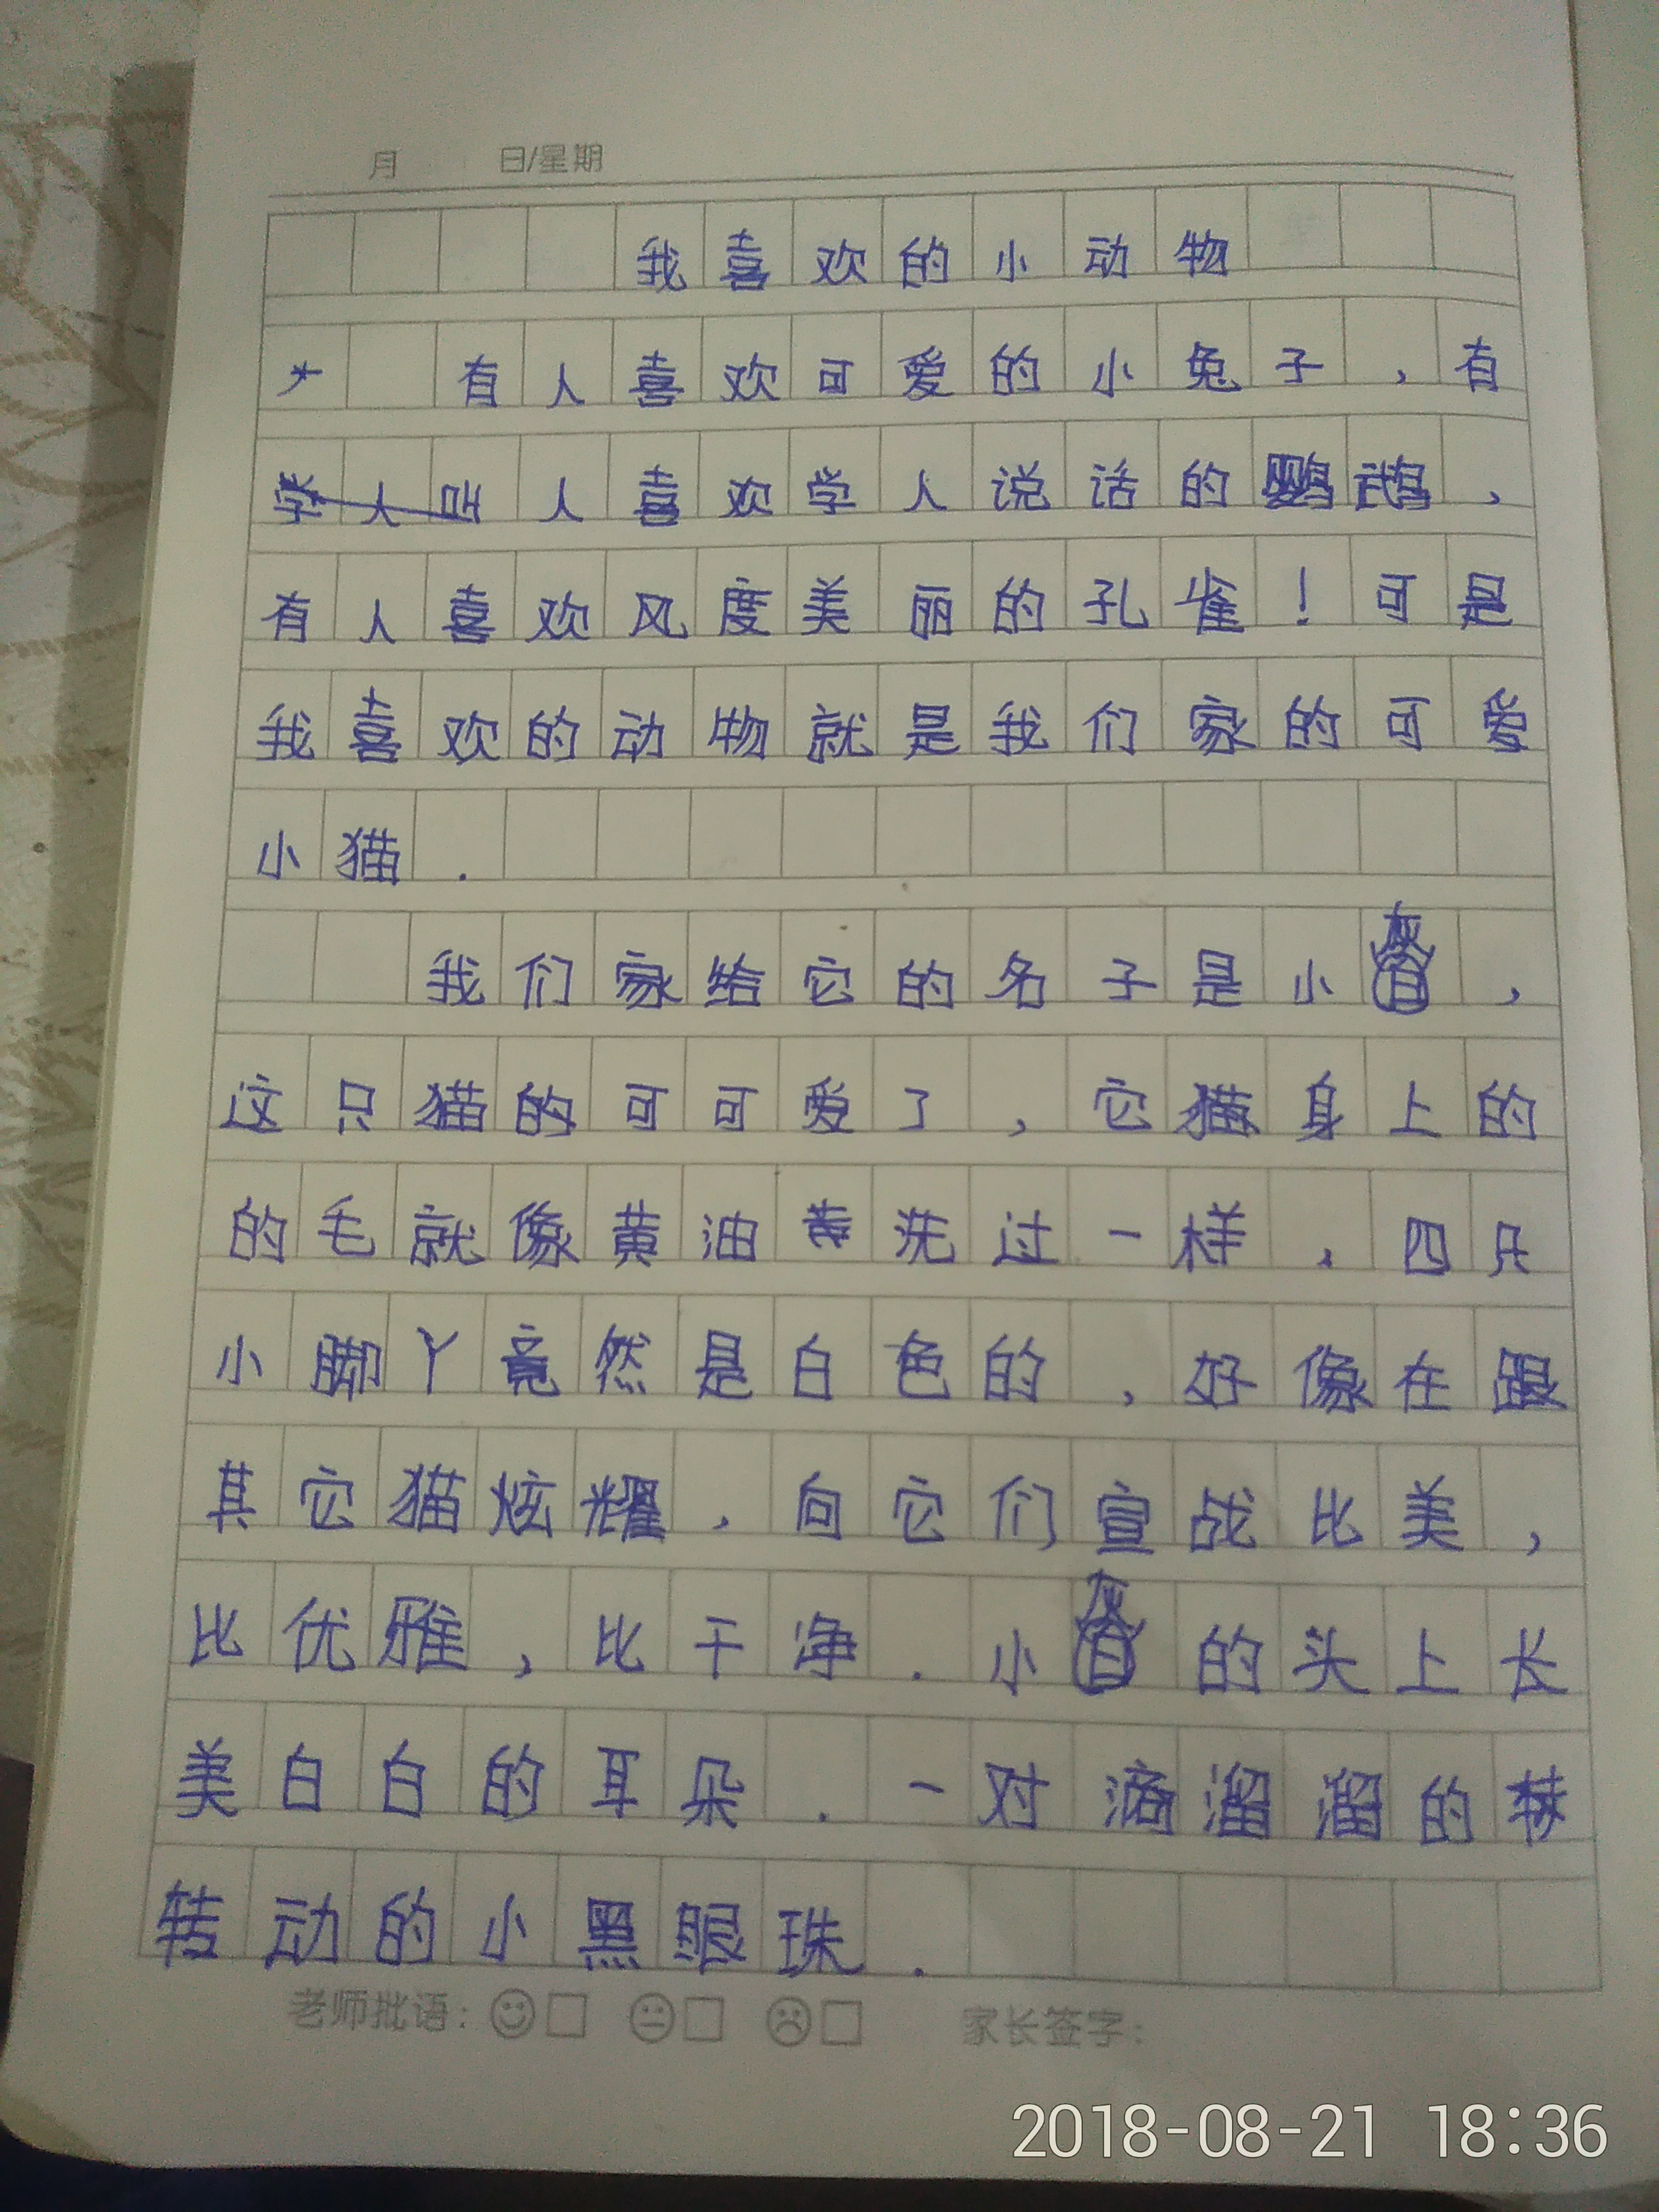 月 日/星期
我喜欢的小动物
有人喜欢可爱的小兔子，有
学人叫人喜欢学人说话的鹦鹉，
有人喜欢风度美丽的孔雀！可是
我喜欢的动物就是我们家的可爱
小猫.
我们家给它的名子是小灰，
这只猫的可可爱了，它猫身上的
的毛就像黄油黄洗过一样，四只
小脚丫竟然是白色的，好像在跟
其它猫炫耀，向它们宣战比美，
比优雅，比干净.小灰的头上长
美白白的耳朵.一对滴溜溜的
转动的小黑眼珠.
老师批语： 家长签字：
2018-08-21 18:36